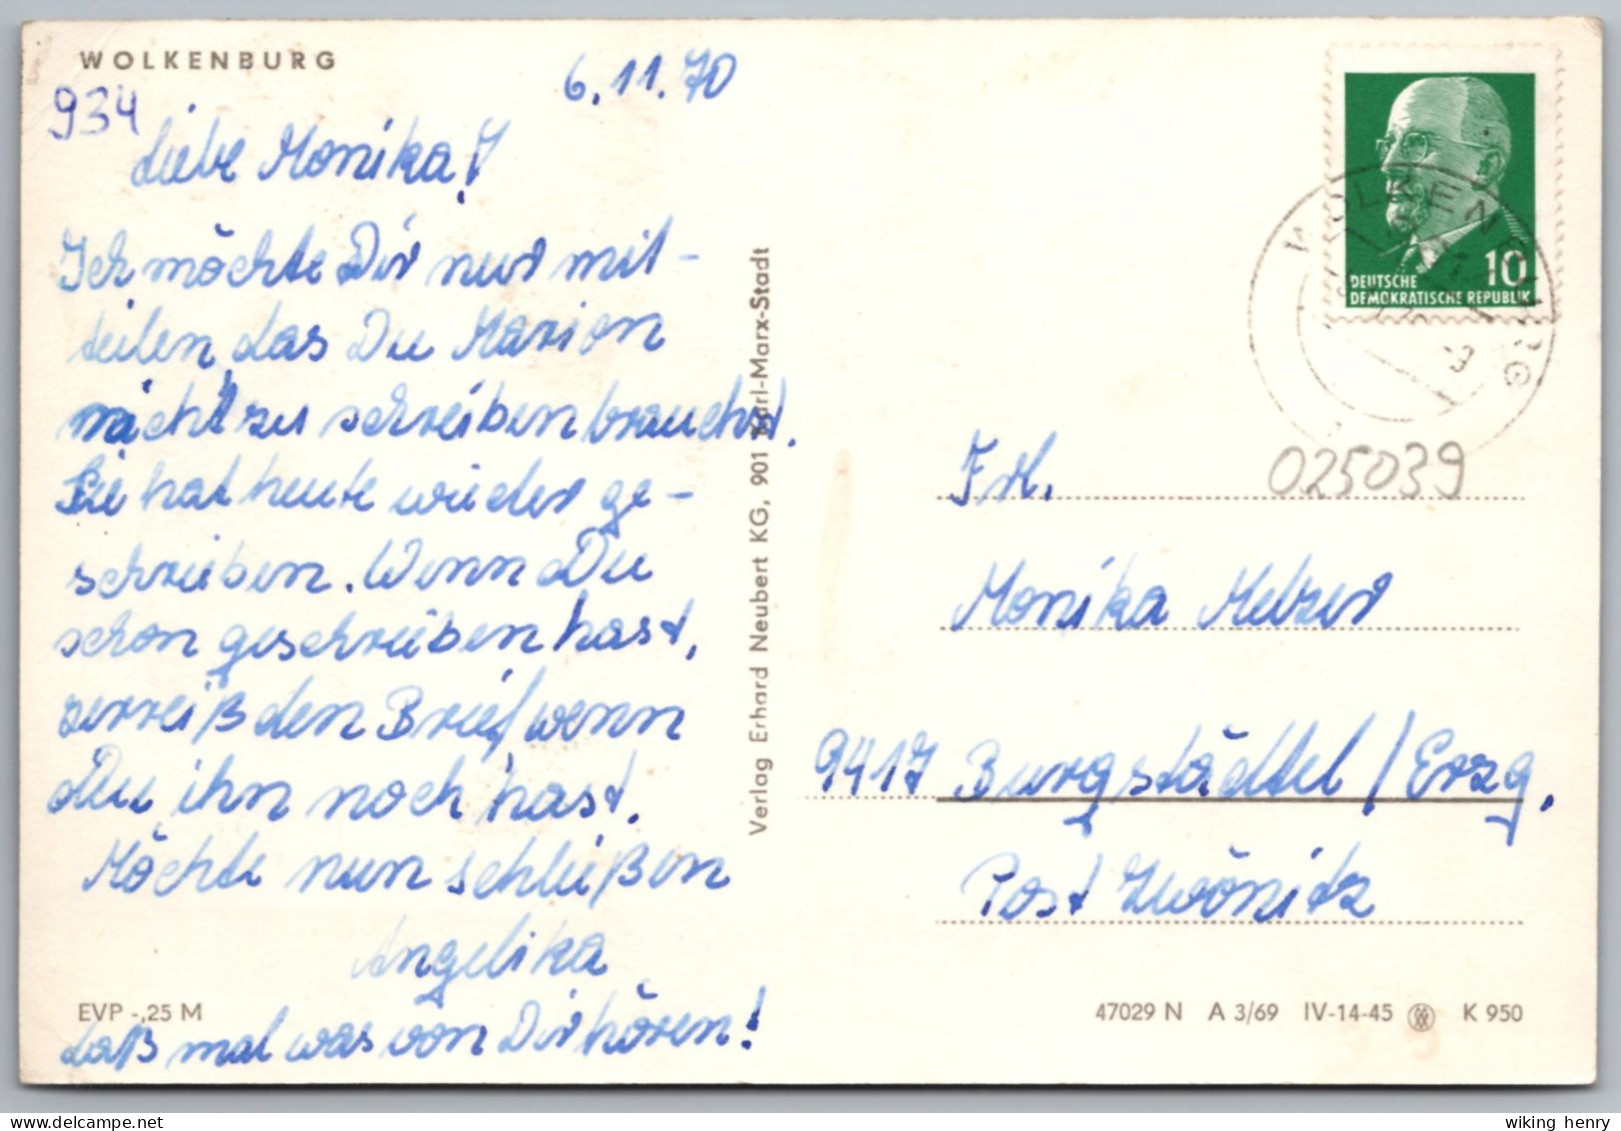 WOLKENBURG
934
6.11.70
Liebe Monika!
Ich möchte Dir nur mit-
teilen das Du Marion
nicht zu schreiben brauchst.
Sie hat heute wieder ge-
schrieben. Wenn Du
schon geschrieben hast,
zerreiß den Brief wenn
Du ihn noch hast.
Möchte nun schließen
Angelika
Laß mal was von Dir hören!
EVP -,25 M
Verlag Erhard Neubert KG, 901 Karl-Marx-Stadt
10
DEUTSCHE
DEMOKRATISCHE REPUBLIK
WOLKENBURG
025039
Frl.
Monika Melzer
9417 Burgstädtel / Erzg.
Post Zwönitz
47029 N A 3/69 IV-14-45 K 950
wiking henry